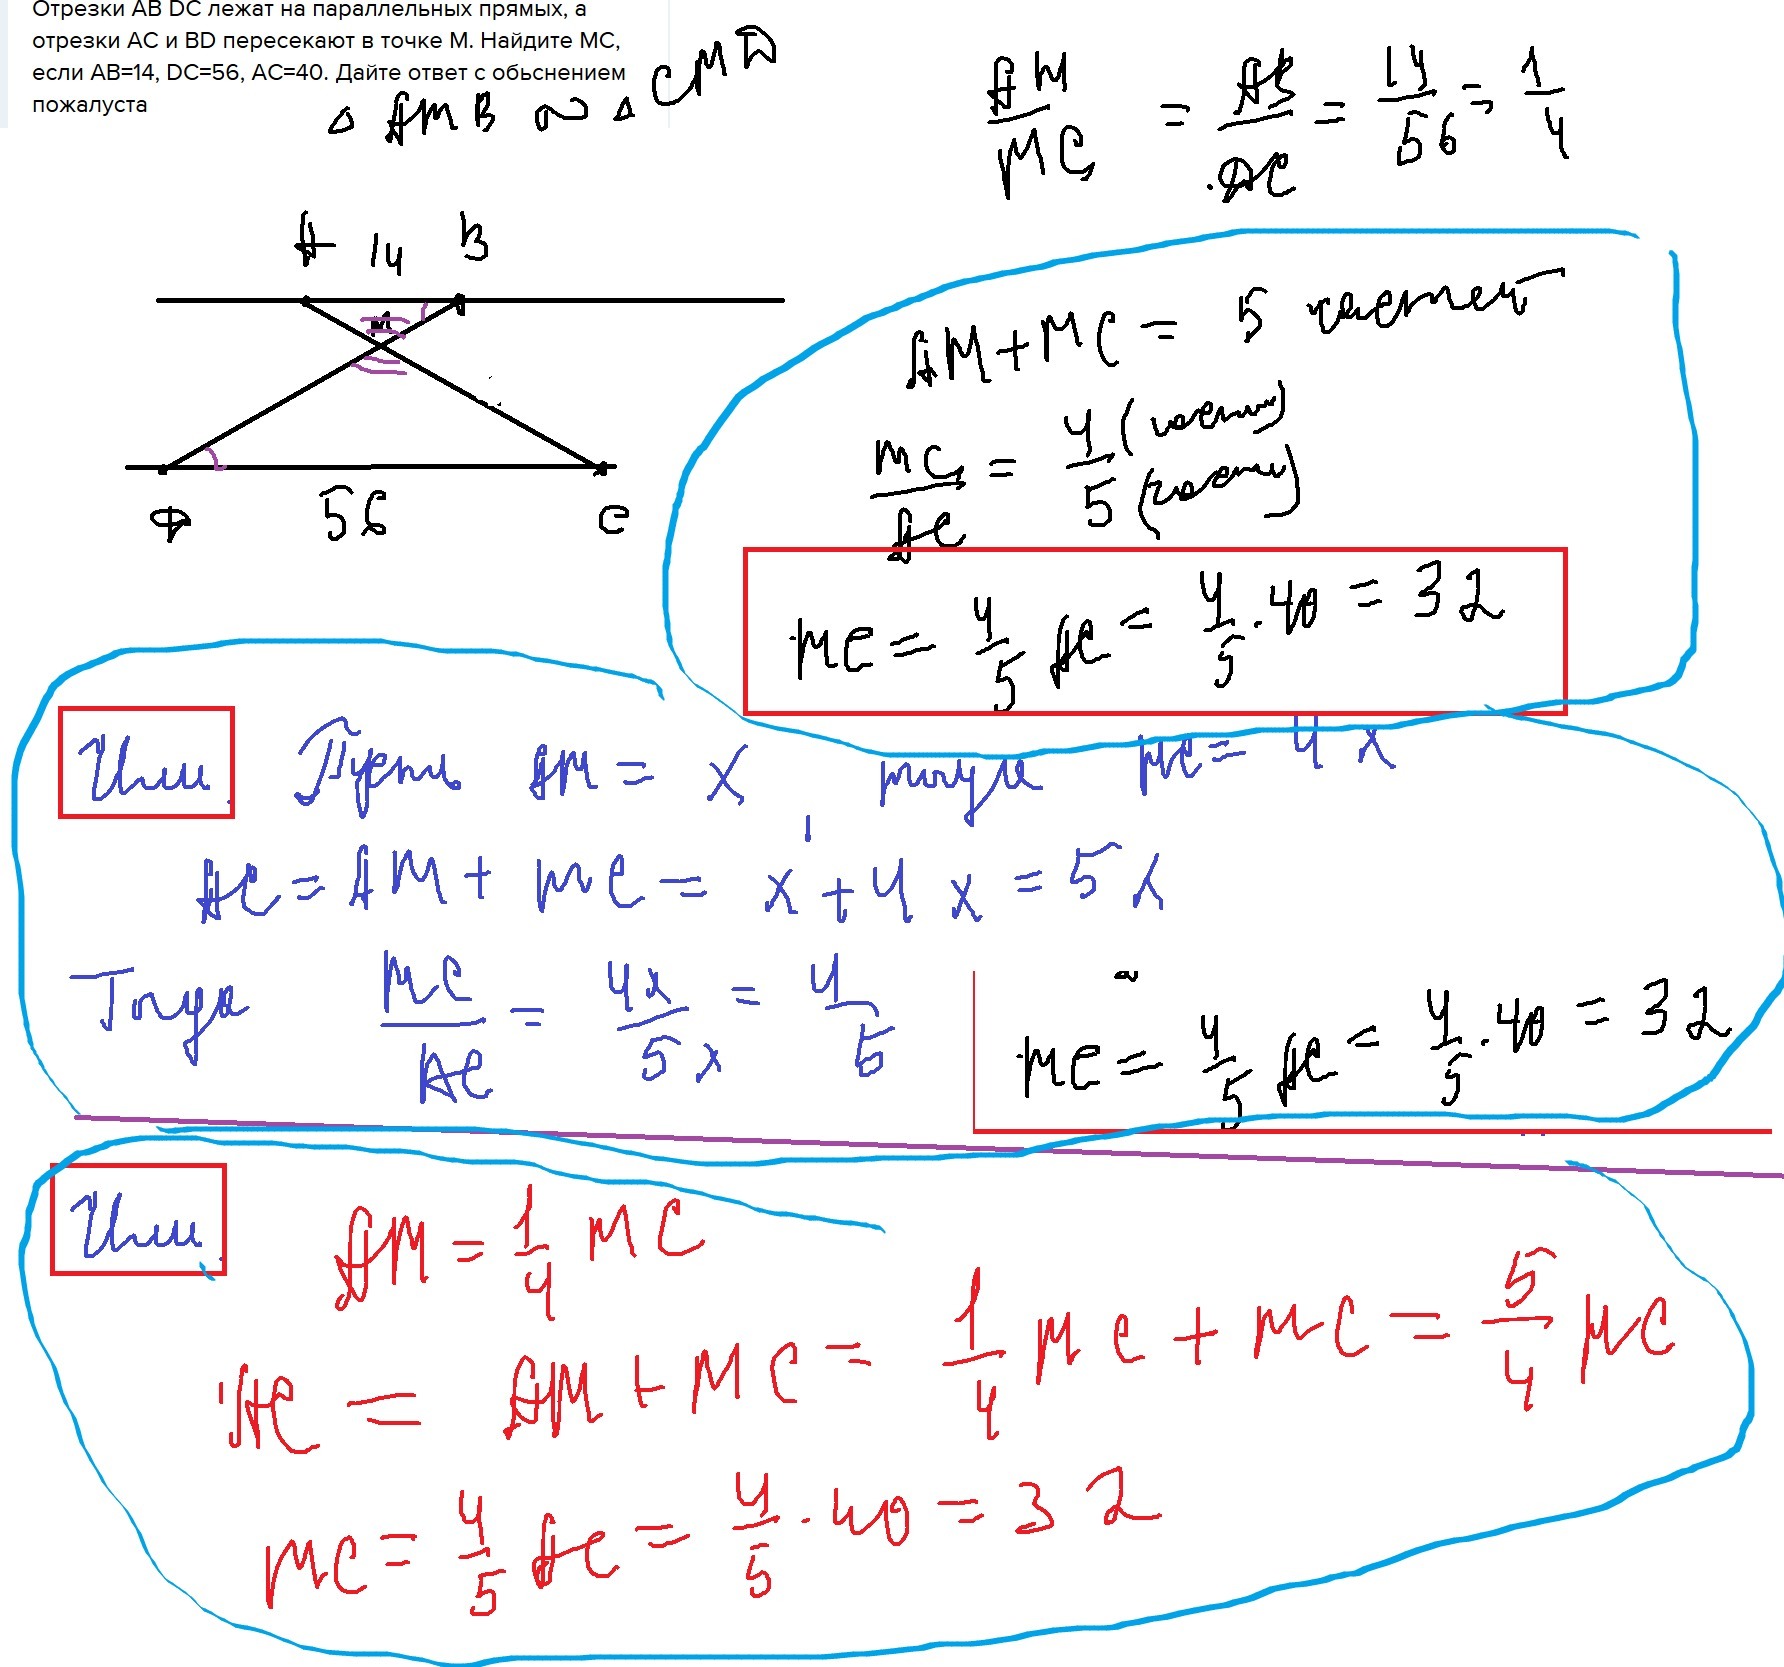 Отрезки AB DC лежат на параллельных прямых, а
отрезки AC и BD пересекают в точке M. Найдите MC,
если AB=14, DC=56, AC=40. Дайте ответ с обьснением
пожалуста
△ AMB ∾ △ CMD
AM/MC = AB/DC = 14/56 = 1/4
A 14 B
M
D 56 C
AM+MC = 5 частей
MC/AC = 4 (части) / 5 (части)
MC = 4/5 AC = 4/5 · 40 = 32
Или Пусть AM = x, тогда MC = 4x
AC = AM + MC = x + 4x = 5x
Тогда MC/AC = 4x/5x = 4/5
MC = 4/5 AC = 4/5 · 40 = 32
Или AM = 1/4 MC
AC = AM + MC = 1/4 MC + MC = 5/4 MC
MC = 4/5 AC = 4/5 · 40 = 32